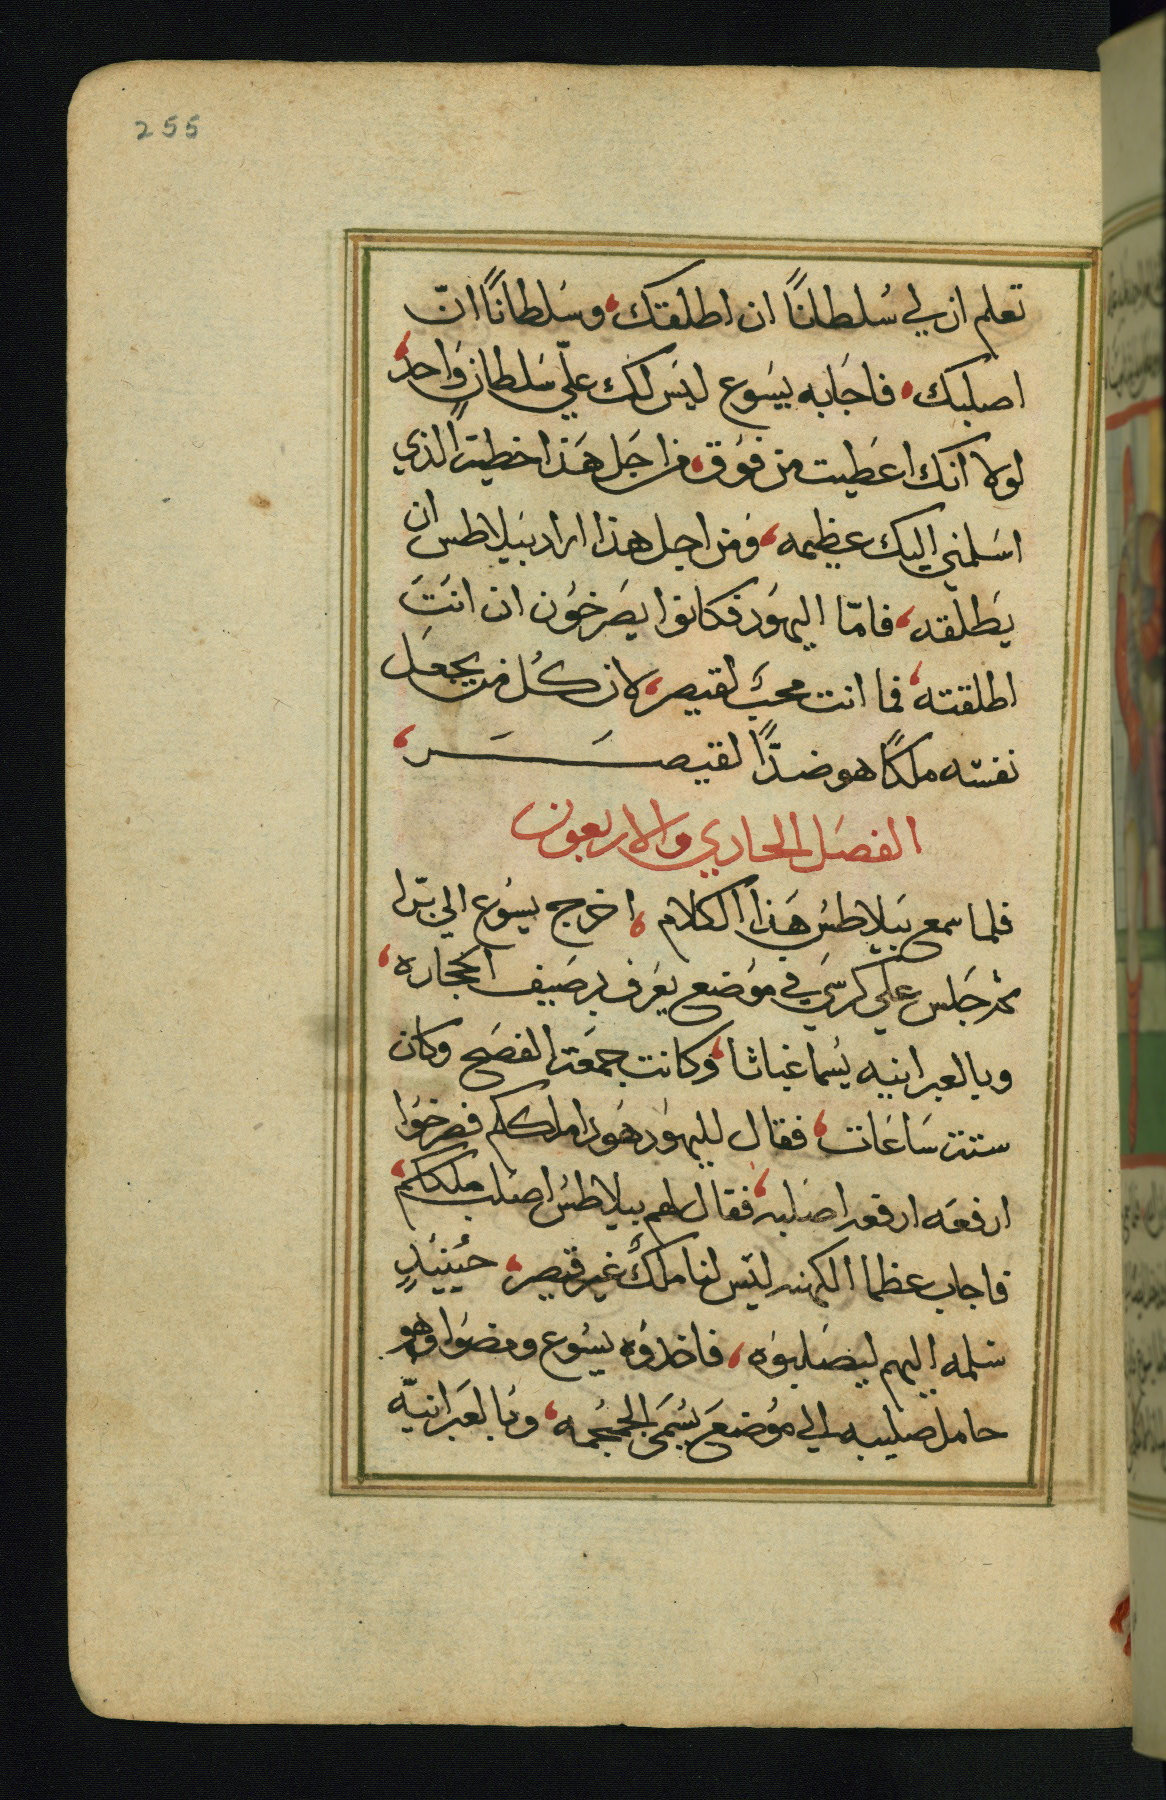 255
تعلم ان لي سُلطانًا ان اطلقتك، وسُلطانًا انّ
اصلبك، فاجَابه يسَوع ليَس لك علّي سَلطان وَاحد،
لولا انك اعَطيت من فوَق، من اجَل هَذا خطية الذي
اسَلمني اليك عظيمه، وَمن اجل هذا اراد بيَلاطس ان
يَطلقه، فامّا اليهوَد فكانوا يصَرخوَن ان انتَ
اطلقته، فما انت محبَ لقيصر، لان كُل من يجعَل
نفسَه ملكًا هو ضدًّا لقيصَــَـر،
الفصَل الحادي والاربعون
فلما سمع بَيلاطسُ هَذا الكلام، اخرج يسَوع الي برّا
ثم جَلس علي كرسَي في موَضع يعَرف برصَيف الحجاره،
وبالعبرانيه يُسما غباثا، وَكانت جمعَة الفصَح وكان
ستة سَاعَات، فقال لليهوَد هَودا ملككم فصرخوُا
ارفعَه ارفعه اصَلبه، فقال لهم بيلاطسُ اصَلب ملككم،
فاجاب عظما الكهنه ليَس لنا ملكٌ غير قيصر، حيُنيَدٍ
سَلمه اليهم ليصَلبوَه، فاخدوَه يسَوع ومضوَا وهو
حامل صليبه الي موُضعَ يسُمَي الجمجُمه، وبَالعَبرانيّه